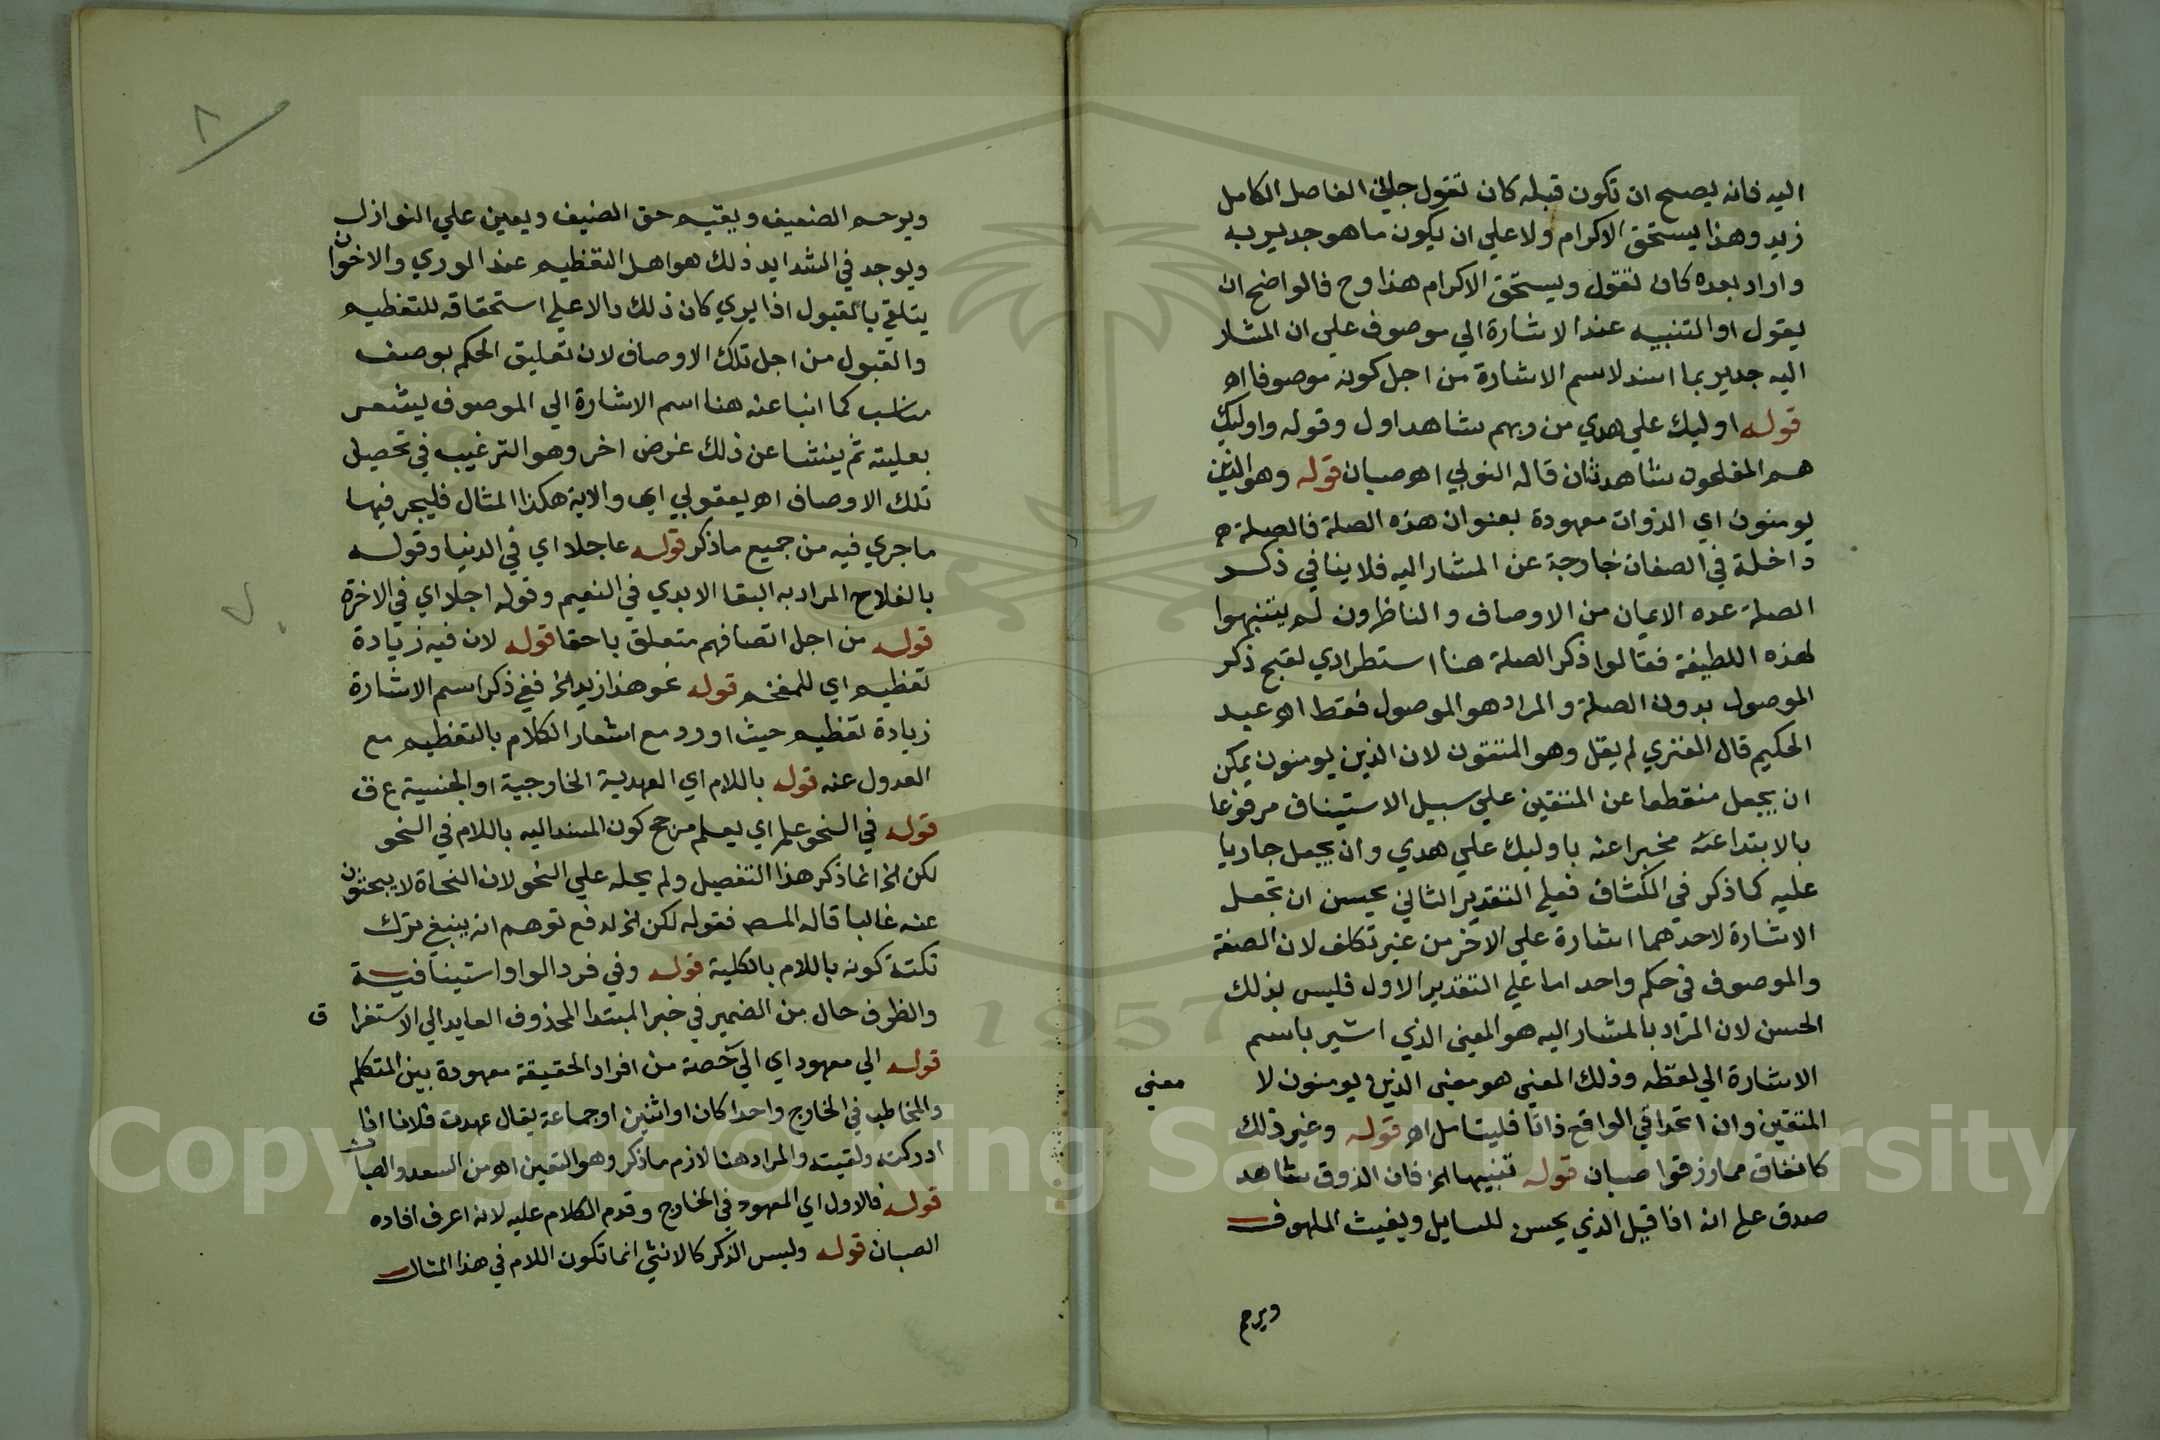 اليه فانه يصح ان تكون قبله كان تقول جاني الفاضل الكامل
زيد وهذا يستحق الاكرام ولا علي ان يكون ما هو جدير به
واراد بعده كان تقول ويستحق الاكرام هذا وح فالواضح ان
يقول او التنبيه عند الاشارة الي موصوف علي ان المشار
اليه جدير بما اسند لاسم الاشارة من اجل كونه موصوفا اه
قوله اوليك علي هدي من ربهم شاهد اول وقوله واوليك
هم المفلحون شاهد ثان قاله النوبي اه صبان قوله وهو الذين
يومنون اي الذوات معهودة بعنوان هذه الصلة فالصلة ه
داخلة في الصفات خارجة عن المشار اليه فلا ينافي ذكر
الصلة عده الايمان من الاوصاف والناظرون لم ينتبهوا
لهذه اللطيفة فقالوا ذكر الصلة هنا استطرادي لقبح ذكر
الموصول بدون الصلة والمراد هو الموصول فقط اه عبد
الحكيم قال الفنري لم يقل وهو المتقون لان الذين يومنون يمكن
ان يجعل منقطعا عن المتقين علي سبيل الاستيناف مرفوعا
بالابتدا عنه مخبرا عنه باوليك علي هدي وان يجعل جاريا
عليه كما ذكر في الكشاف فعلي التقدير الثاني يحسن ان تجعل
الاشارة لاحدهما اشارة علي الاخر من غير تكلف لان الصفة
والموصوف في حكم واحد اما علي التقدير الاول فليس بذلك
الحسن لان المراد بالمشار اليه هو المعني الذي اشير باسم
الاشارة الي لفظه وذلك المعني هو معني الذين يومنون لا
معني
المتقين وان اتحدا في الواقع ذاتا فليتامل اه قوله وغير ذلك
كانفاق مما رزقوا صبان قوله تنبيها الخ فان الذوق شاهد
صدق علي انه اذا قيل الذي يحسن للسايل ويغيث الملهوف
ويرحم
٨
ويرحم الضعيف ويقيم حق الضيف ويعين علي النوازل
ويوجد في الشدايد ذلك هو اهل التعظيم عند الوري والاخوان
يتلقي بالقبول اذا يري كان ذلك دالا علي استحقاقه للتعظيم
والقبول من اجل تلك الاوصاف لان تعليق الحكم بوصف
مناسب كما انبا عنه هنا اسم الاشارة الي الموصوف ليشعر
بعليته ثم ينشا عن ذلك غرض اخر وهو الترغيب في تحصيل
تلك الاوصاف اه يعقوبي اي والاية هكذا المثال فليجر فيها
ما جري فيه من جميع ما ذكر قوله عاجلا اي في الدنيا وقوله
بالفلاح المراد به البقا الابدي في النعيم وقوله اجلا اي في الاخرة
قوله من اجل اتصافهم متعلق باحقا قوله لان فيه زيادة
تعظيم اي للمفخم قوله نحو هذا زيد الخ ففي ذكر اسم الاشارة
زيادة تعظيم حيث اورد مع اشعار الكلام بالتعظيم مع
العدول عنه قوله باللام اي العهدية الخارجية او الجنسية ع ق
قوله في النحو علم اي يعلم مرجح كون المسند اليه باللام في النحو
لكن الخ انما ذكر هذا التفصيل ولم يحله علي النحو لان النحاة لا يبحثون
عنه غالبا قاله المص فقوله لكن الخ لدفع توهم انه ينبغي ترك
نكتة كونه باللام بالكلية قوله وفي فرد الواو استينافية
والظرف حال من الضمير في خبر المبتدا المحذوف العايد الي الاستغرا ق
قوله الي معهود اي الي حصة من افراد الحقيقة معهودة بين المتكلم
والمخاطب في الخارج واحدا كان او اثنين او جماعة يقال عهدت فلانا اذا
ادركته ولقيته والمراد هنا لازم ما ذكر وهو التعين اه من السعد والصبان
قوله فالاول اي المعهود في الخارج وقدم الكلام عليه لانه اعرف افاده
الصبان قوله وليس الذكر كالانثي انما تكون اللام في هذا المثال
1957
Copyright © King Saud University